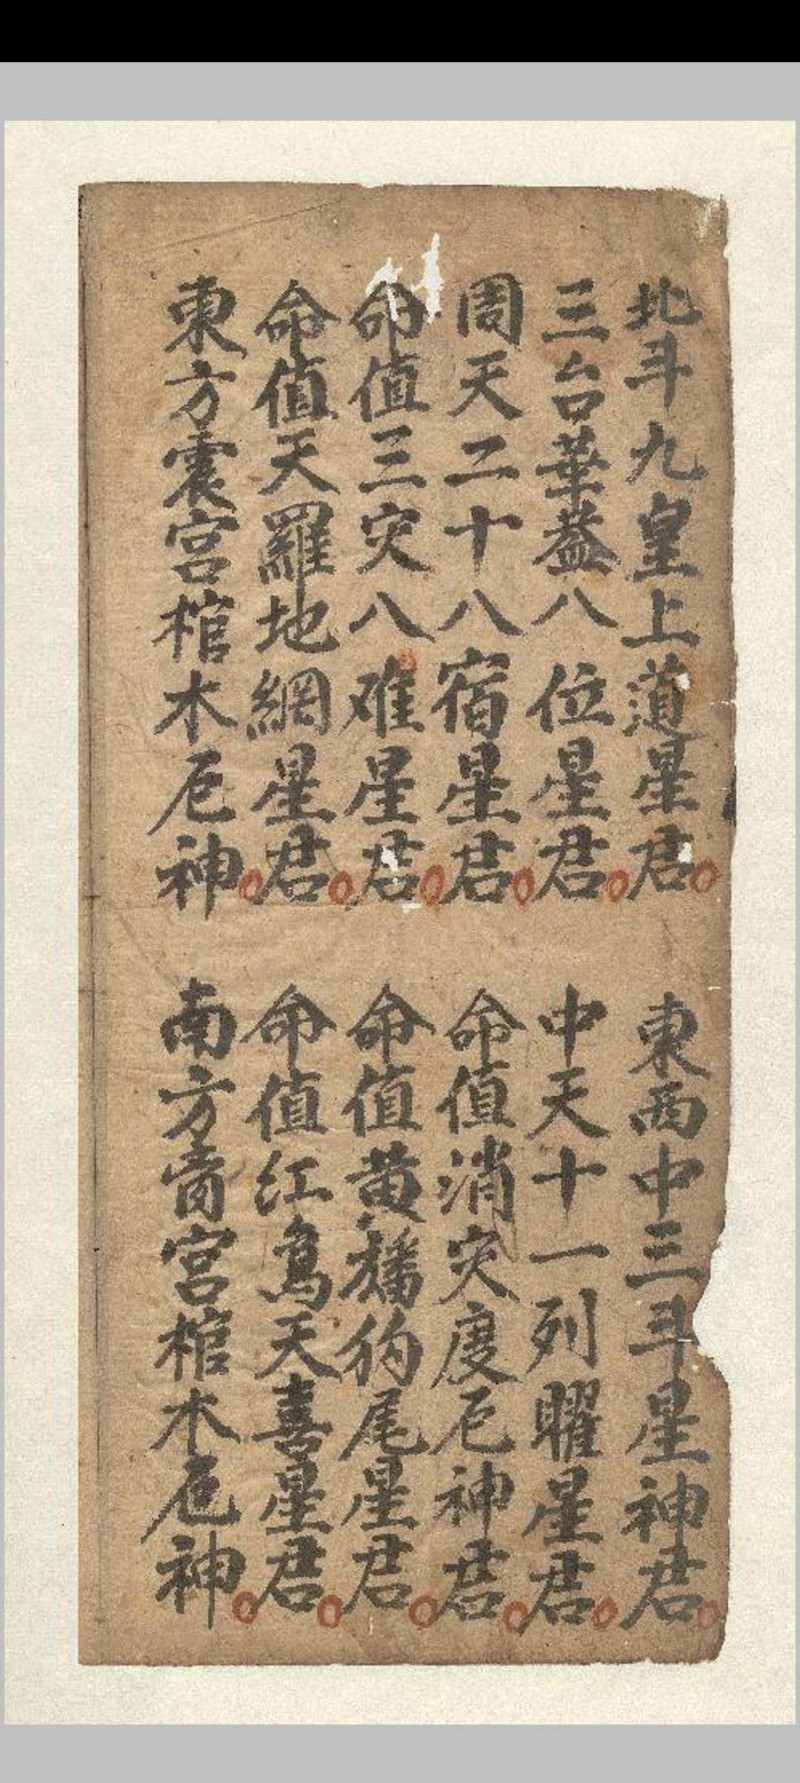 北斗九皇上道星君
東西中三斗星神君
三台華蓋八位星君
中天十一列曜星君
周天二十八宿星君
命值消灾度厄神君
命值三灾八难星君
命值黄旛豹尾星君
命值天羅地網星君
命值红鸟天喜星君
東方震宫棺木厄神
南方离宫棺木厄神